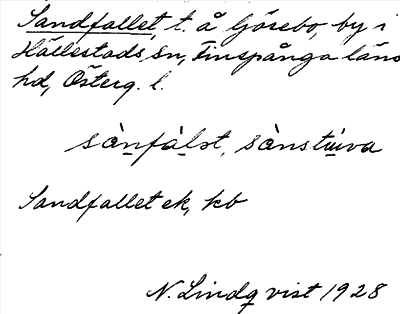 Sandfallet, t. å Görsebo, by i
Hällestads sn, Finspånga läns
hd, Österg. l.
sànfálọt, sànstu̇va
Sandfallet ek, kb
N. Lindqvist 1928